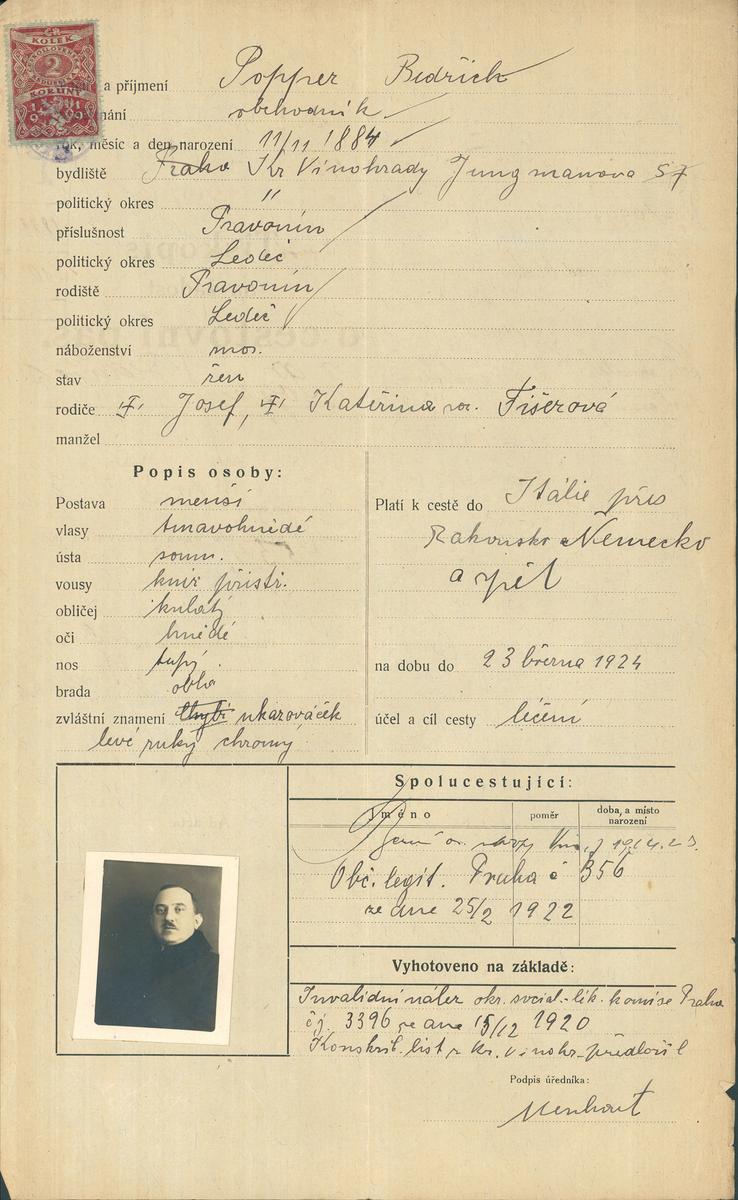 KOLEK
2
KORUNY
a příjmení Popper Bedřich
obchodník
rok, měsíc a den narození 11/11 1884
bydliště Praha Kr Vinohrady Jungmanova 57
politický okres "
příslušnost Pravonín
politický okres Ledeč
rodiště Pravonín
politický okres Ledeč
náboženství mos.
stav žen
rodiče Josef, Kateřina roz. Fišerová
manžel
Popis osoby:
Postava menší
vlasy tmavohnědé
ústa soum.
vousy knír přistř.
obličej kulatý
oči hnědé
nos tupý
brada oblá
zvláštní znamení chybí ukazováček
levé ruky chromý
Platí k cestě do Itálie přes
Rakousko a Německo
a zpět
na dobu do 23 března 1924
účel a cíl cesty léčení
Spolucestující:
Jméno poměr doba, a místo narození
Obč. legit. Praha č 356
ze dne 25/2 1922
Vyhotoveno na základě:
Invalidní nález okr. social.-lék. komise Praha
čj. 3396 ze dne 15/12 1920
Konskrib. list z Kr. Vinohr. předložil
Podpis úředníka: